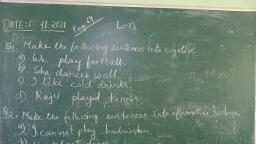 DATE: 11-2021 Pag 69 L-13
Q1. Make the following sentences into negative
a) We play football.
b) She dances well.
c) I like cold drinks.
d) Raju played tennis.
Q2. Make the following sentences into affirmative sentence
a) I cannot play badminton.